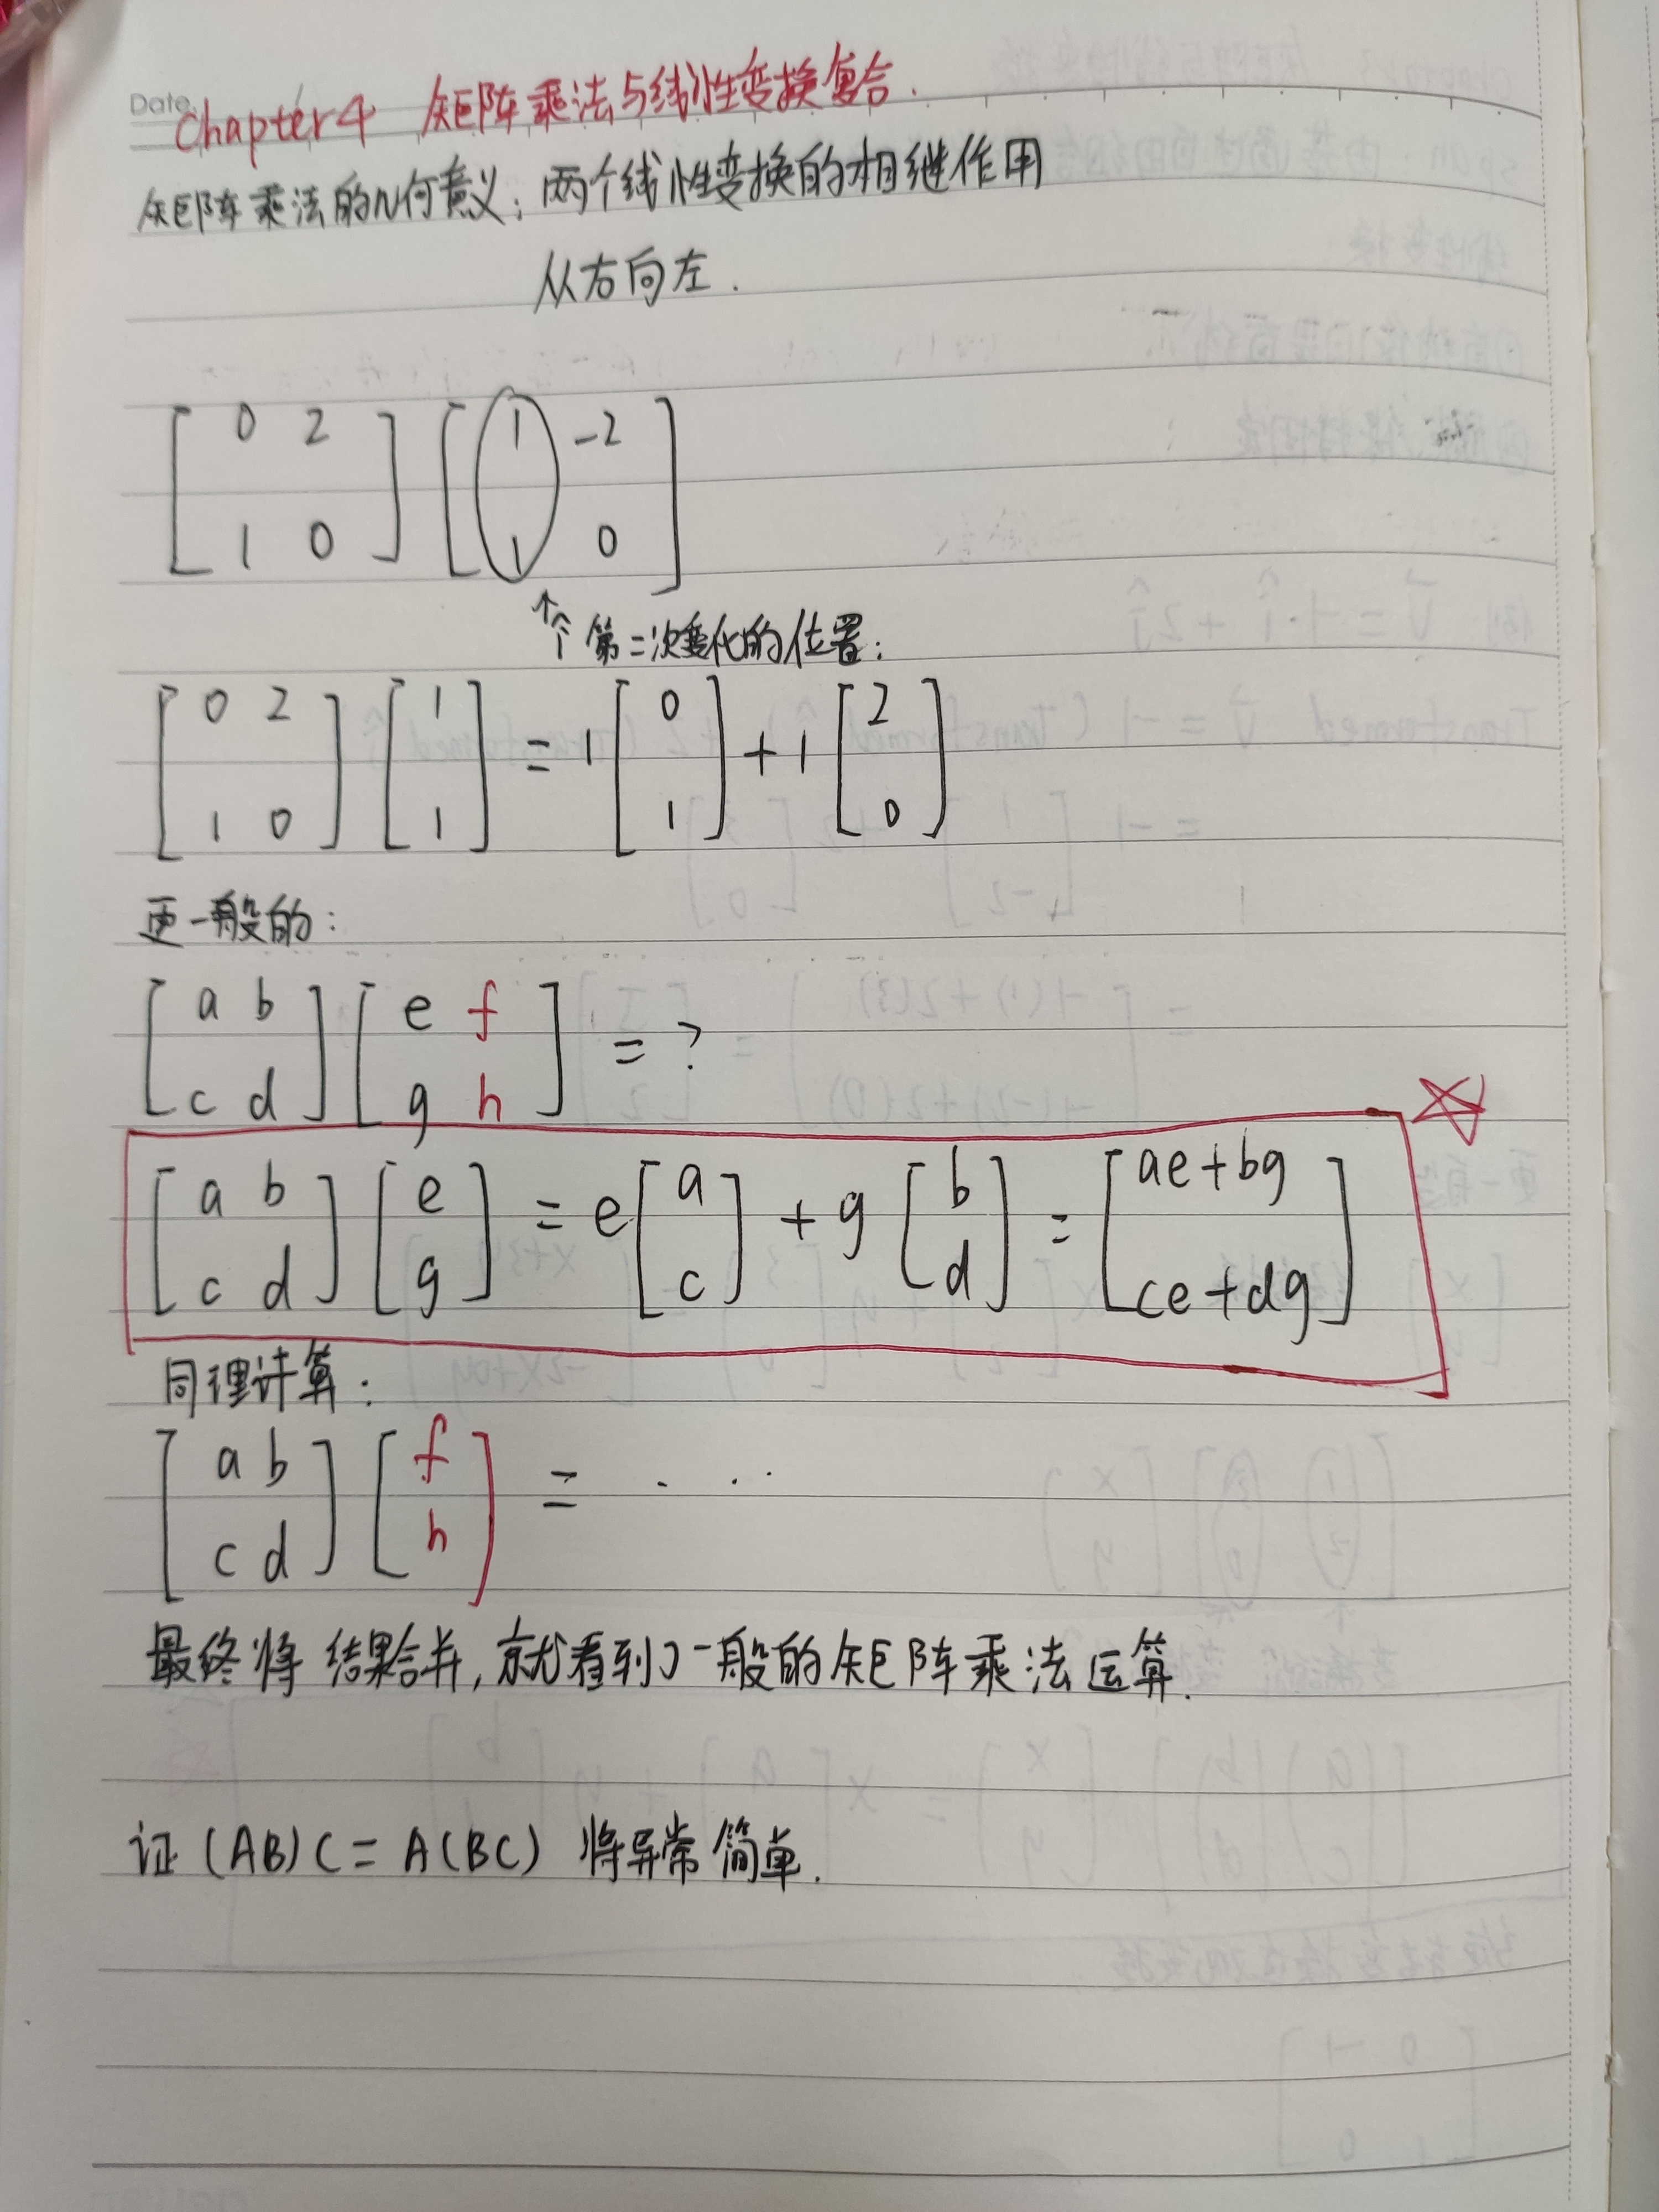 Date
Chapter4 矩阵乘法与线性变换复合.
矩阵乘法的几何意义：两个线性变换的相继作用
从右向左.
[0 2; 1 0] [1 -2; 1 0]
↑ 个 第二次变化的位置：
[0 2; 1 0] [1; 1] = 1 [0; 1] + 1 [2; 0]
更一般的：
[a b; c d] [e f; g h] = ?
[a b; c d] [e; g] = e [a; c] + g [b; d] = [ae+bg; ce+dg]
同理计算：
[a b; c d] [f; h] = . . .
最终将结果合并，就看到了一般的矩阵乘法运算.
证 (AB)C = A(BC) 将异常简单.